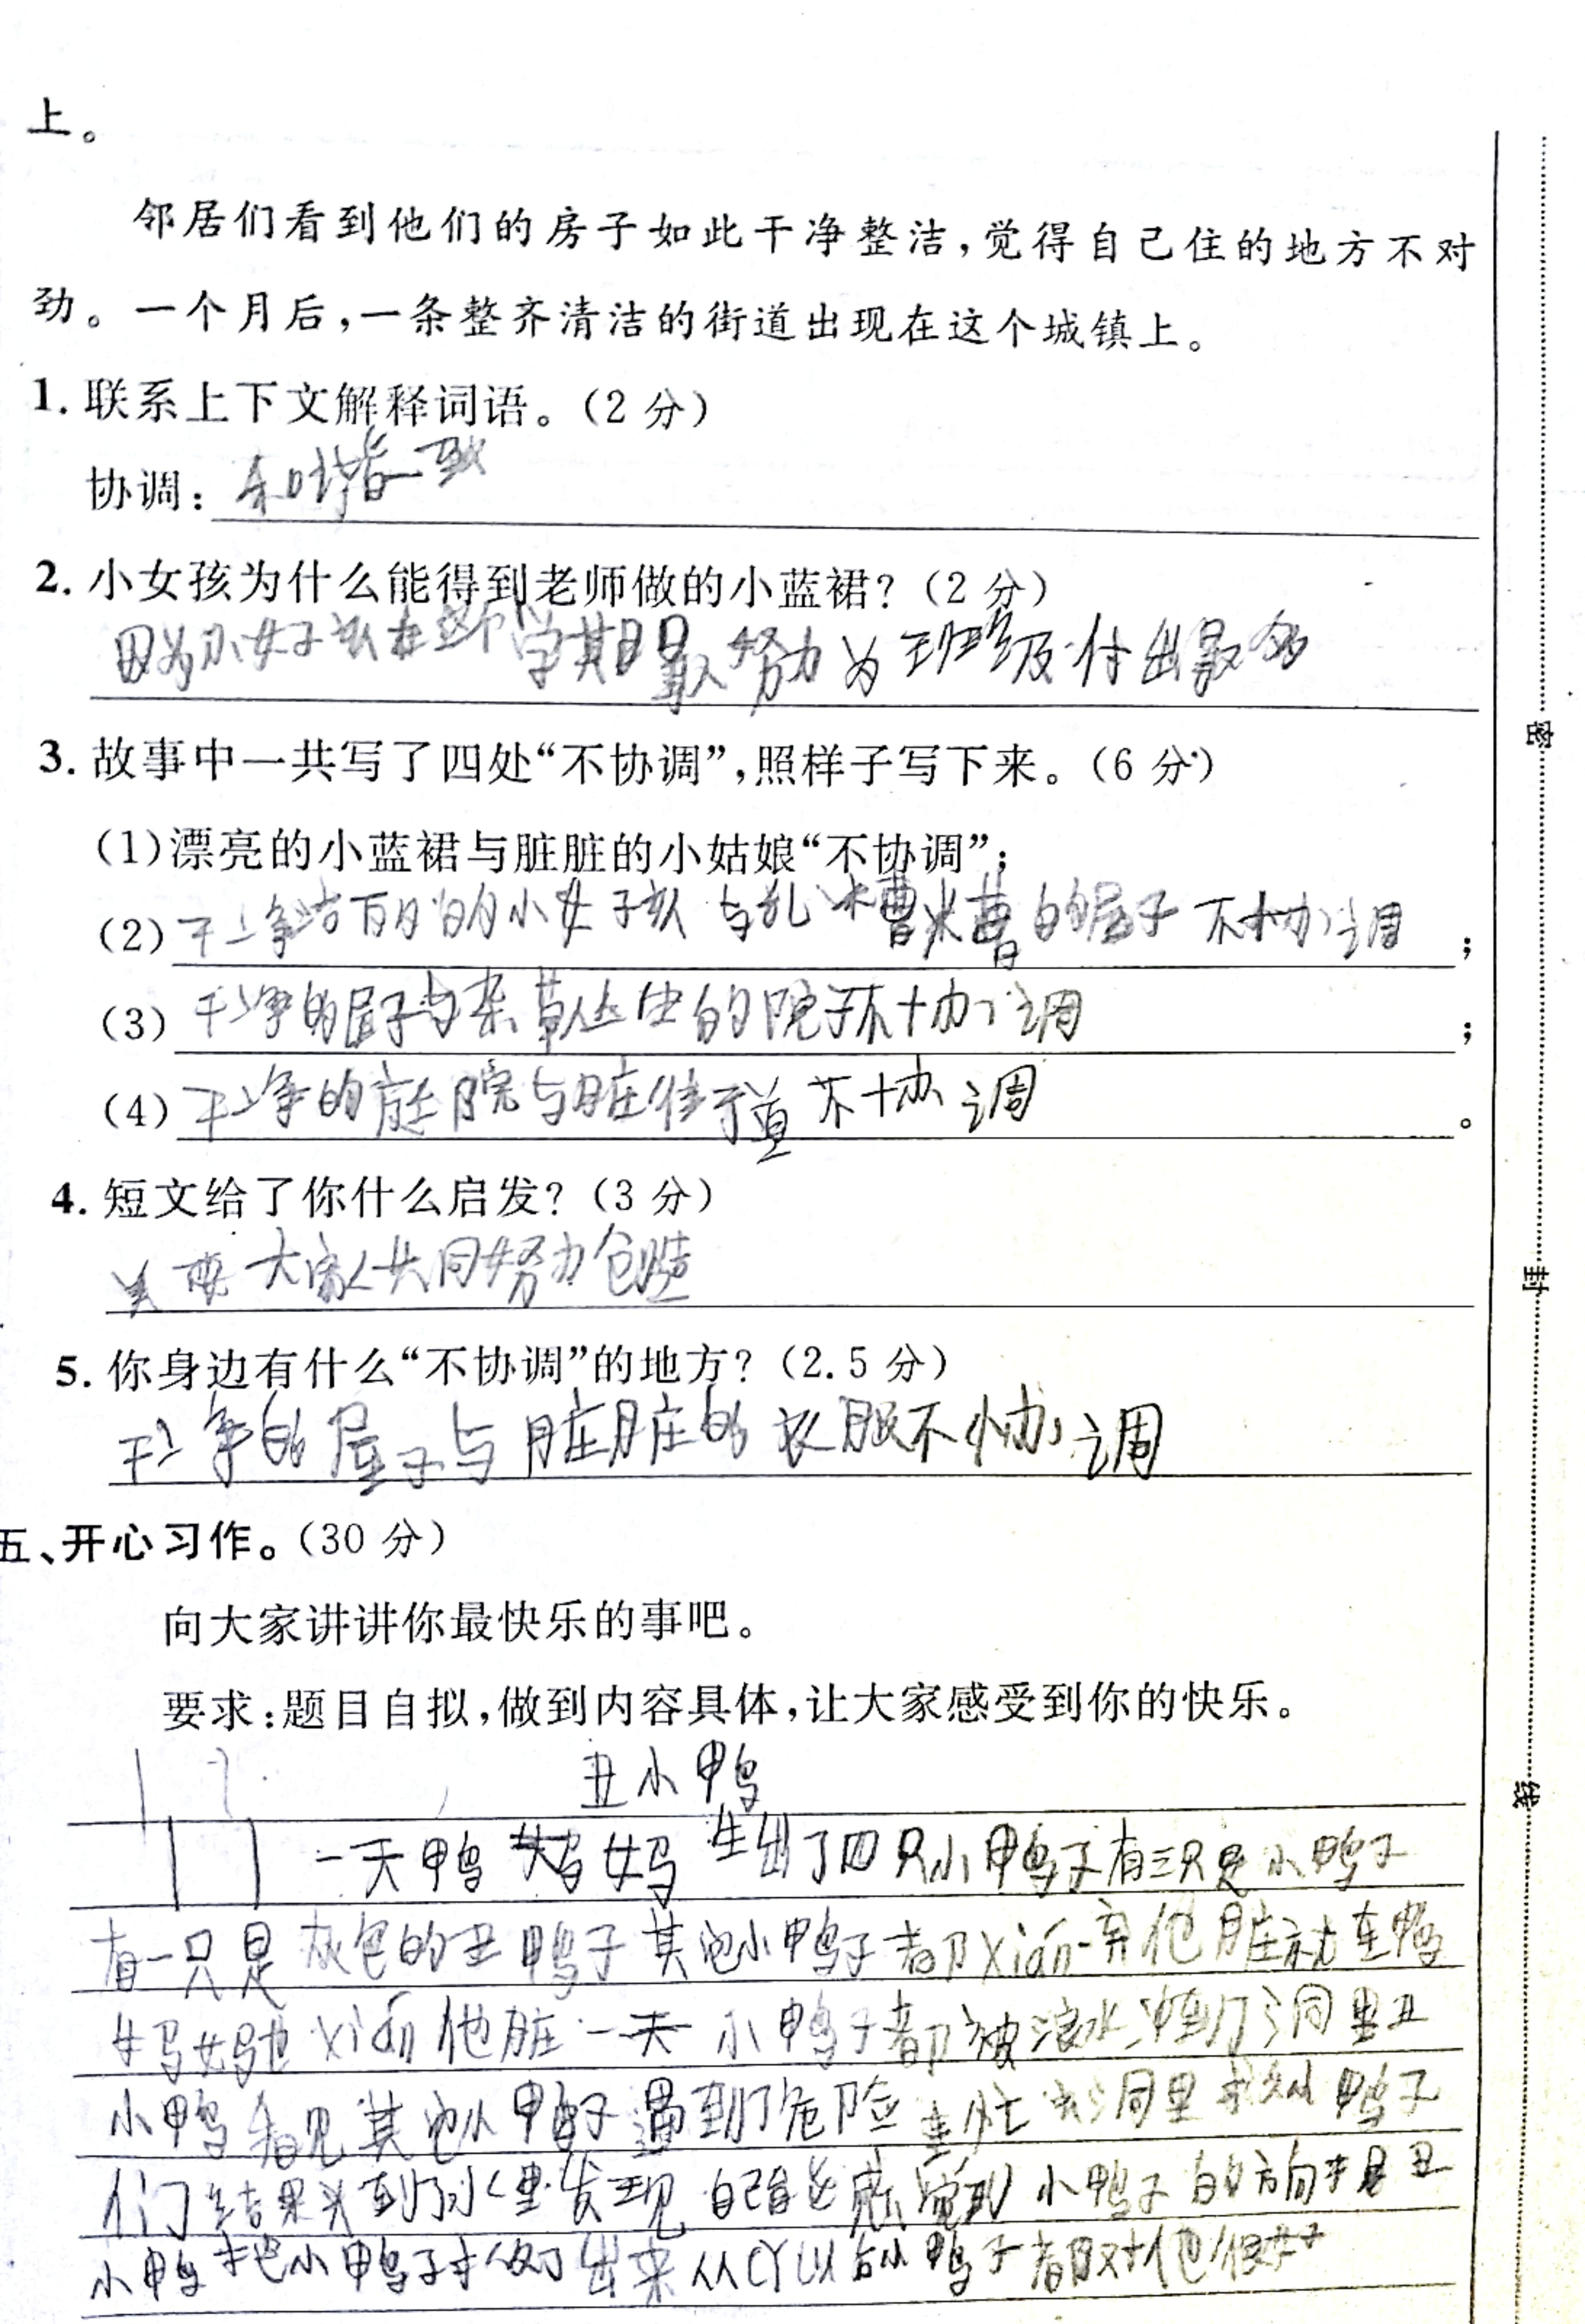 上。
邻居们看到他们的房子如此干净整洁,觉得自己住的地方不对
劲。一个月后,一条整齐清洁的街道出现在这个城镇上。
1. 联系上下文解释词语。(2 分)
协调: 和谐一致
2. 小女孩为什么能得到老师做的小蓝裙?(2 分)
因为小女孩在这个学期最努力为班级付出最多
3. 故事中一共写了四处“不协调”,照样子写下来。(6 分)
(1)漂亮的小蓝裙与脏脏的小姑娘“不协调”;
(2)干净漂亮的小女孩与乱糟糟的屋子不协调;
(3)干净的屋子与杂草丛生的院子不协调;
(4)干净的庭院与脏街道不协调。
4. 短文给了你什么启发?(3 分)
美要大家共同努力创造
5. 你身边有什么“不协调”的地方?(2.5 分)
干净的屋子与脏脏的衣服不协调
五、开心习作。(30 分)
向大家讲讲你最快乐的事吧。
要求:题目自拟,做到内容具体,让大家感受到你的快乐。
丑小鸭
一天鸭妈妈生出了四只小鸭子有三只是小鸭子
有一只是灰色的丑鸭子其他小鸭子都xián弃他脏就连鸭
妈妈也xián他脏一天小鸭子都被浪水冲到了洞里丑
小鸭看见其他小鸭子遇到了危险连忙去洞里求鸭子
们结果头到了水里发现自己能感觉到小鸭子的方向于是丑
小鸭把小鸭子救了出来从cǐ以后小鸭子都对他很好
密
封
线